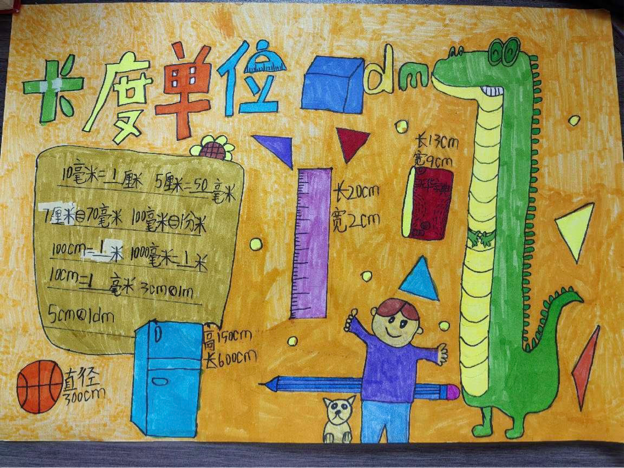 长度单位 dm
10毫米=1厘米 5厘米=50毫米
7厘米=70毫米 100毫米=1分米
100cm=1米 1000毫米=1米
10cm=1毫米 3cm<1m
5cm<1dm
长20cm
宽2cm
长13cm
宽9cm
高190cm
长600cm
直径
300cm